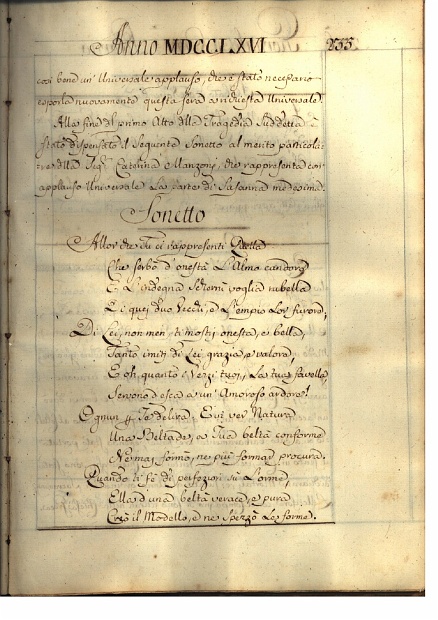 Anno MDCCLXVI 233.
così bene un' Universale applauso, che è stato necessario
esporla nuovamente questa sera a richiesta Universale.
Alla fine del primo Atto della Tragedia Suddetta è
stato dispensato il Seguente Sonetto al merito particola=
=re della Sig.ª Caterina Manzoni, che rappresenta con
applauso Universale La parte di Susanna medesima.
Sonetto
Allor che Tu ci rappresenti Quella
Che serbò d'onestà L'Almo candore
E L'indegna schernì voglia rubella
E i quei duo Vecchi, e L'empio Lor furore,
Di Lei, non men, ti mostri onesta, e bella,
Tanto imiti di Lei, grazia, e valore,
E oh, quanto i Vezzi tuoi, La tua favella,
Servono d'esca a un' Amoroso ardore!
Ognun p Te delira. E in ver Natura
Una Beltade, a Tua beltà conforme
Ne mai formò, ne più formar procura.
Quando ti fè di perfezion su L'orme,
Ella d'una beltà verace, e pura
Creò il Modello, e ne Spezzò Le forme.